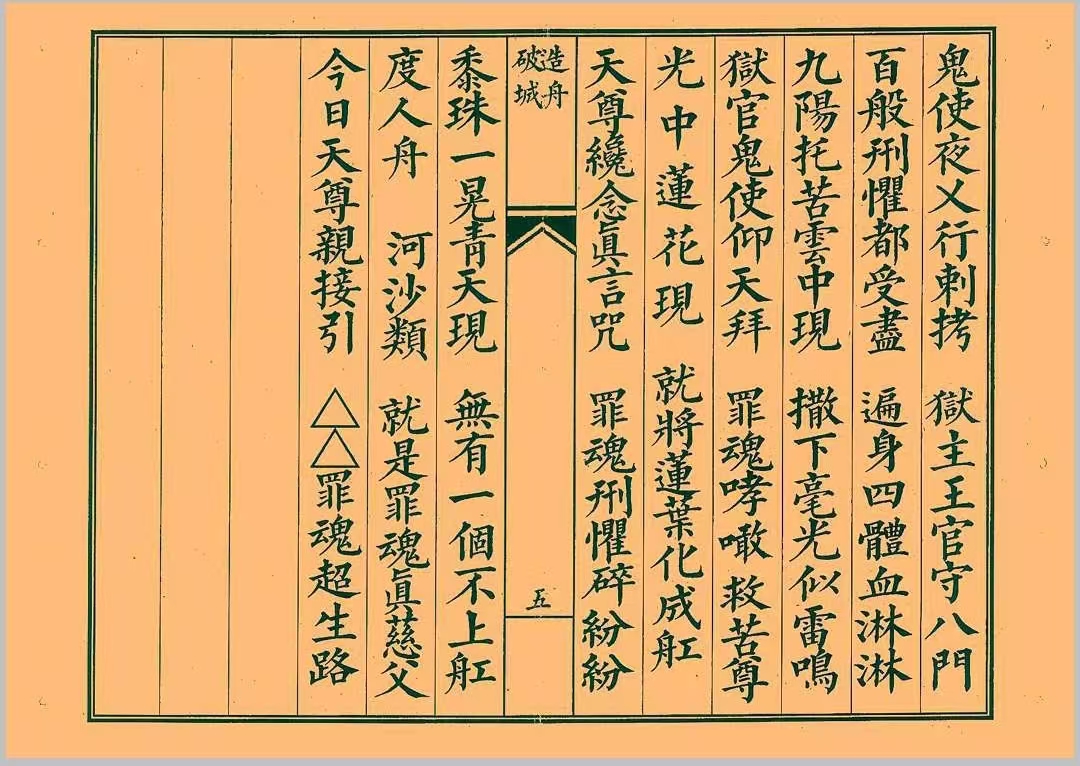 鬼使夜乂行刺拷　獄主王官守八門
百般刑懼都受盡　遍身四體血淋淋
九陽托苦雲中現　撒下毫光似雷鳴
獄官鬼使仰天拜　罪魂哮噉救苦尊
光中蓮花現　就將蓮葉化成舡
天尊纔念眞言咒　罪魂刑懼碎紛紛
造舟
破城
五
黍珠一晃青天現　無有一個不上舡
度人舟　河沙類　就是罪魂眞慈父
今日天尊親接引　△△罪魂超生路